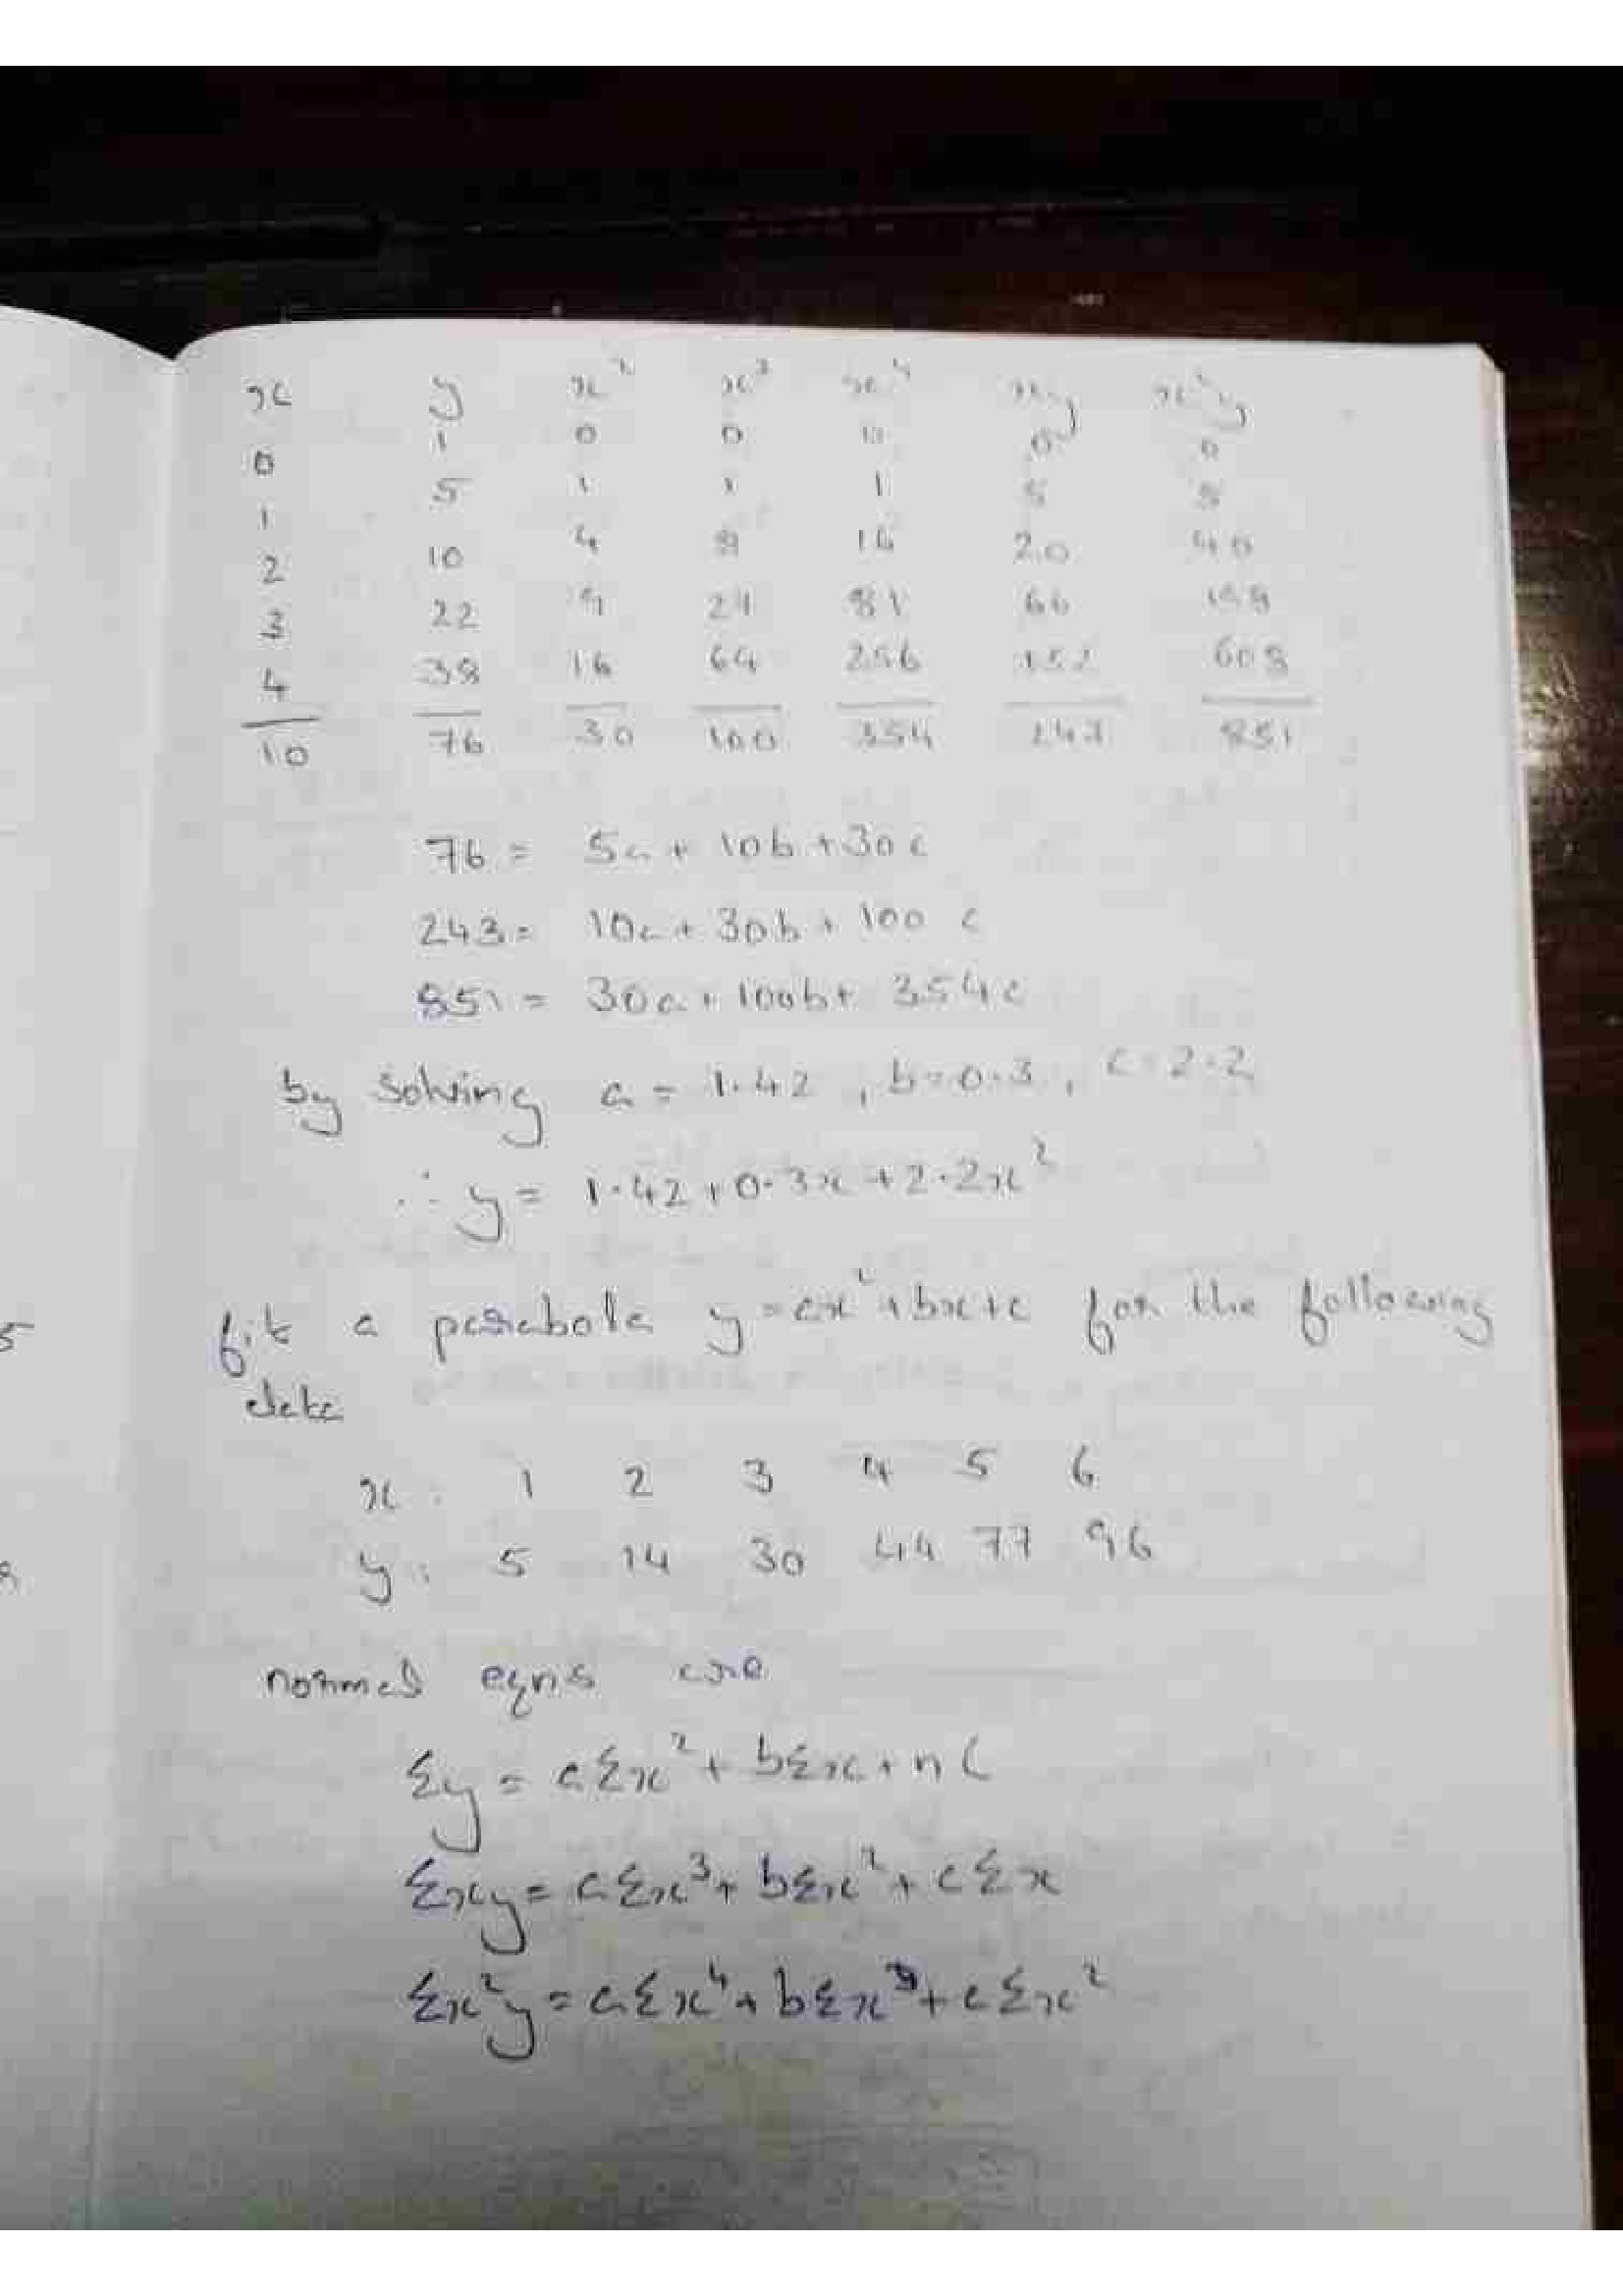 x y x² x³ x⁴ xy x²y
0 1 0 0 0 0 0
1 5 1 1 1 5 5
2 10 4 8 16 20 40
3 22 9 27 81 66 198
4 38 16 64 256 152 608
10 76 30 100 354 243 851
76 = 5a + 10b + 30c
243 = 10a + 30b + 100 c
851 = 30a + 100b + 354c
by solving a = 1.42 , b = 0.3 , c = 2.2
∴ y = 1.42 + 0.3x + 2.2x²
fit a parabola y = ax² + bx + c for the following
data
x : 1 2 3 4 5 6
y : 5 14 30 44 77 96
normal eqns are
Σy = aΣx² + bΣx + nC
Σxy = aΣx³ + bΣx² + cΣx
Σx²y = aΣx⁴ + bΣx³ + cΣx²